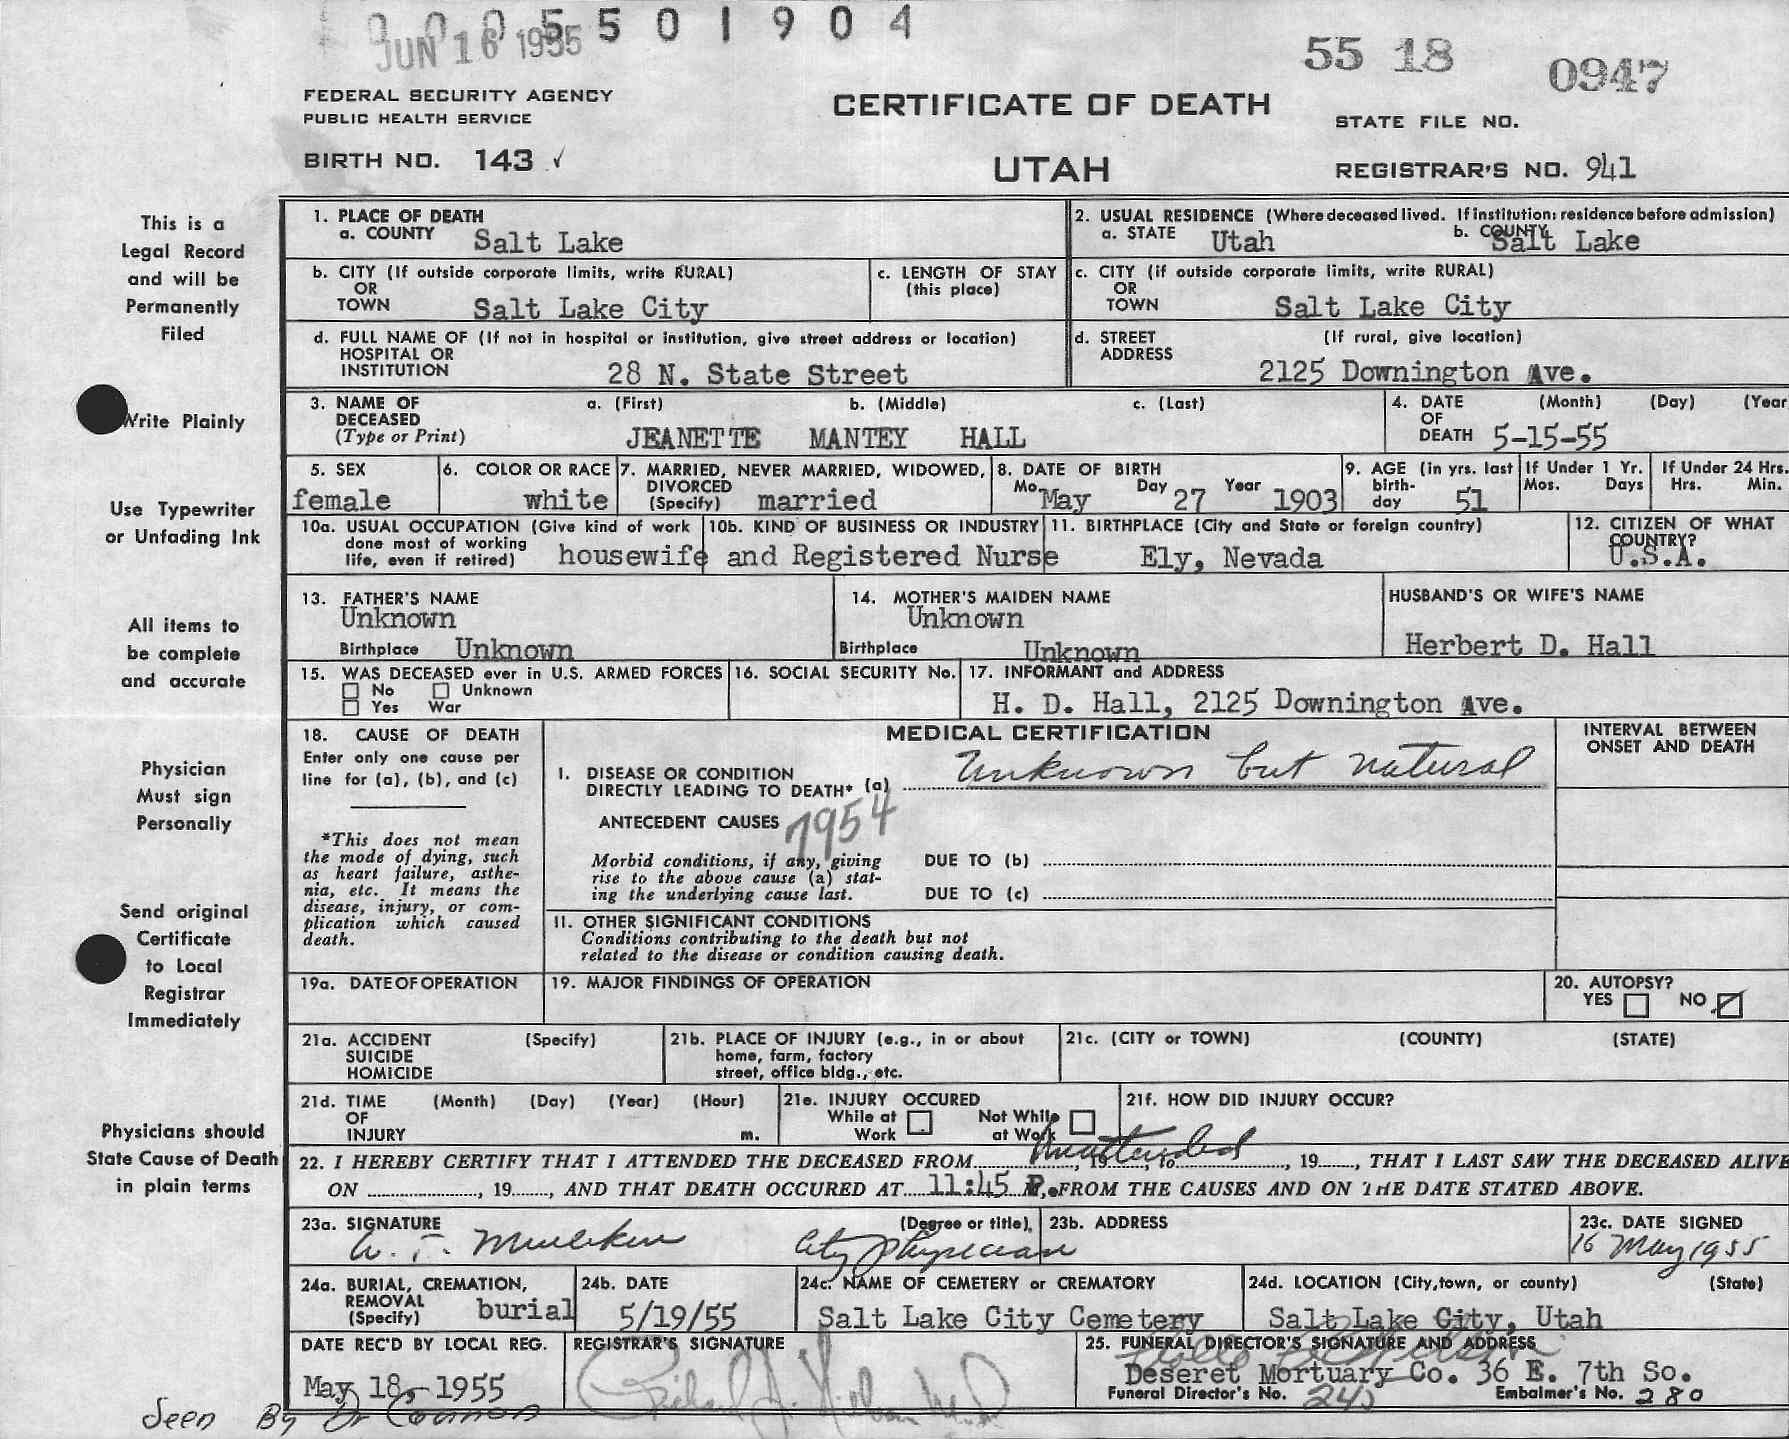 0 0 0 5 5 0 1 9 0 4
JUN 16 1955
55 18 0947
FEDERAL SECURITY AGENCY
PUBLIC HEALTH SERVICE
CERTIFICATE OF DEATH
STATE FILE NO.
BIRTH NO. 143 ✓
UTAH
REGISTRAR'S NO. 941
This is a
Legal Record
and will be
Permanently
Filed
Write Plainly
Use Typewriter
or Unfading Ink
All items to
be complete
and accurate
Physician
Must sign
Personally
Send original
Certificate
to Local
Registrar
Immediately
Physicians should
State Cause of Death
in plain terms
1. PLACE OF DEATH
a. COUNTY Salt Lake
2. USUAL RESIDENCE (Where deceased lived. If institution: residence before admission)
a. STATE Utah b. COUNTY Salt Lake
b. CITY (If outside corporate limits, write RURAL)
OR
TOWN Salt Lake City
c. LENGTH OF STAY
(this place)
c. CITY (if outside corporate limits, write RURAL)
OR
TOWN Salt Lake City
d. FULL NAME OF (If not in hospital or institution, give street address or location)
HOSPITAL OR
INSTITUTION 28 N. State Street
d. STREET (If rural, give location)
ADDRESS
2125 Downington Ave.
3. NAME OF a. (First) b. (Middle) c. (Last)
DECEASED
(Type or Print) JEANETTE MANTEY HALL
4. DATE (Month) (Day) (Year
OF
DEATH 5-15-55
5. SEX
female
6. COLOR OR RACE
white
7. MARRIED, NEVER MARRIED, WIDOWED,
DIVORCED
(Specify) married
8. DATE OF BIRTH
Mo. May Day 27 Year 1903
9. AGE (in yrs. last
birth-
day 51
If Under 1 Yr.
Mos. Days
If Under 24 Hrs.
Hrs. Min.
10a. USUAL OCCUPATION (Give kind of work
done most of working
life, even if retired) housewife
10b. KIND OF BUSINESS OR INDUSTRY
and Registered Nurse
11. BIRTHPLACE (City and State or foreign country)
Ely, Nevada
12. CITIZEN OF WHAT
COUNTRY?
U.S.A.
13. FATHER'S NAME
Unknown
Birthplace Unknown
14. MOTHER'S MAIDEN NAME
Unknown
Birthplace Unknown
HUSBAND'S OR WIFE'S NAME
Herbert D. Hall
15. WAS DECEASED ever in U.S. ARMED FORCES
No Unknown
Yes War
16. SOCIAL SECURITY No.
17. INFORMANT and ADDRESS
H. D. Hall, 2125 Downington Ave.
18. CAUSE OF DEATH
Enter only one cause per
line for (a), (b), and (c)
*This does not mean
the mode of dying, such
as heart failure, asthe-
nia, etc. It means the
disease, injury, or com-
plication which caused
death.
MEDICAL CERTIFICATION
INTERVAL BETWEEN
ONSET AND DEATH
I. DISEASE OR CONDITION
DIRECTLY LEADING TO DEATH* (a) Unknown but natural
ANTECEDENT CAUSES 7954
Morbid conditions, if any, giving
rise to the above cause (a) stat-
ing the underlying cause last.
DUE TO (b)
DUE TO (c)
II. OTHER SIGNIFICANT CONDITIONS
Conditions contributing to the death but not
related to the disease or condition causing death.
19a. DATE OF OPERATION
19. MAJOR FINDINGS OF OPERATION
20. AUTOPSY?
YES NO
21a. ACCIDENT (Specify)
SUICIDE
HOMICIDE
21b. PLACE OF INJURY (e.g., in or about
home, farm, factory
street, office bldg., etc.
21c. (CITY or TOWN) (COUNTY) (STATE)
21d. TIME (Month) (Day) (Year) (Hour)
OF
INJURY m.
21e. INJURY OCCURED
While at Not While
Work at Work
21f. HOW DID INJURY OCCUR?
22. I HEREBY CERTIFY THAT I ATTENDED THE DECEASED FROM Unattended, 19, to, 19, THAT I LAST SAW THE DECEASED ALIVE
ON, 19, AND THAT DEATH OCCURED AT 11:45 P. FROM THE CAUSES AND ON THE DATE STATED ABOVE.
23a. SIGNATURE (Degree or title)
City Physician
23b. ADDRESS
23c. DATE SIGNED
16 May 1955
24a. BURIAL, CREMATION,
REMOVAL
(Specify) burial
24b. DATE
5/19/55
24c. NAME OF CEMETERY or CREMATORY
Salt Lake City Cemetery
24d. LOCATION (City, town, or county) (State)
Salt Lake City, Utah
DATE REC'D BY LOCAL REG.
May 18, 1955
REGISTRAR'S SIGNATURE
25. FUNERAL DIRECTOR'S SIGNATURE AND ADDRESS
Deseret Mortuary Co. 36 E. 7th So.
Funeral Director's No. Embalmer's No. 280
Seen By Dr